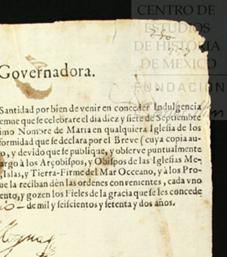 CENTRO DE
ESTUDIOS
DE HISTORIA
DE MÉXICO
FUNDACIÓN
Governadora.
Santidad por bien de venir en conceder Indulgencia
emne que se celebrare el dia diez y siete de Septiembre
imo Nombre de Maria en qualquiera Iglesia de los
formidad que se declara por el Breve (cuya copia au-
o, y devido que se publique, y observe puntualmente
argo à los Arçobispos, y Obispos de las Iglesias Me-
, Islas, y Tierra-Firme del Mar Occeano, y à los Pro-
ue la reciban dèn las ordenes convenientes, cada vno
ento, y gozen los Fieles de la gracia que se les concede
de mil y seiscientos y setenta y dos años.